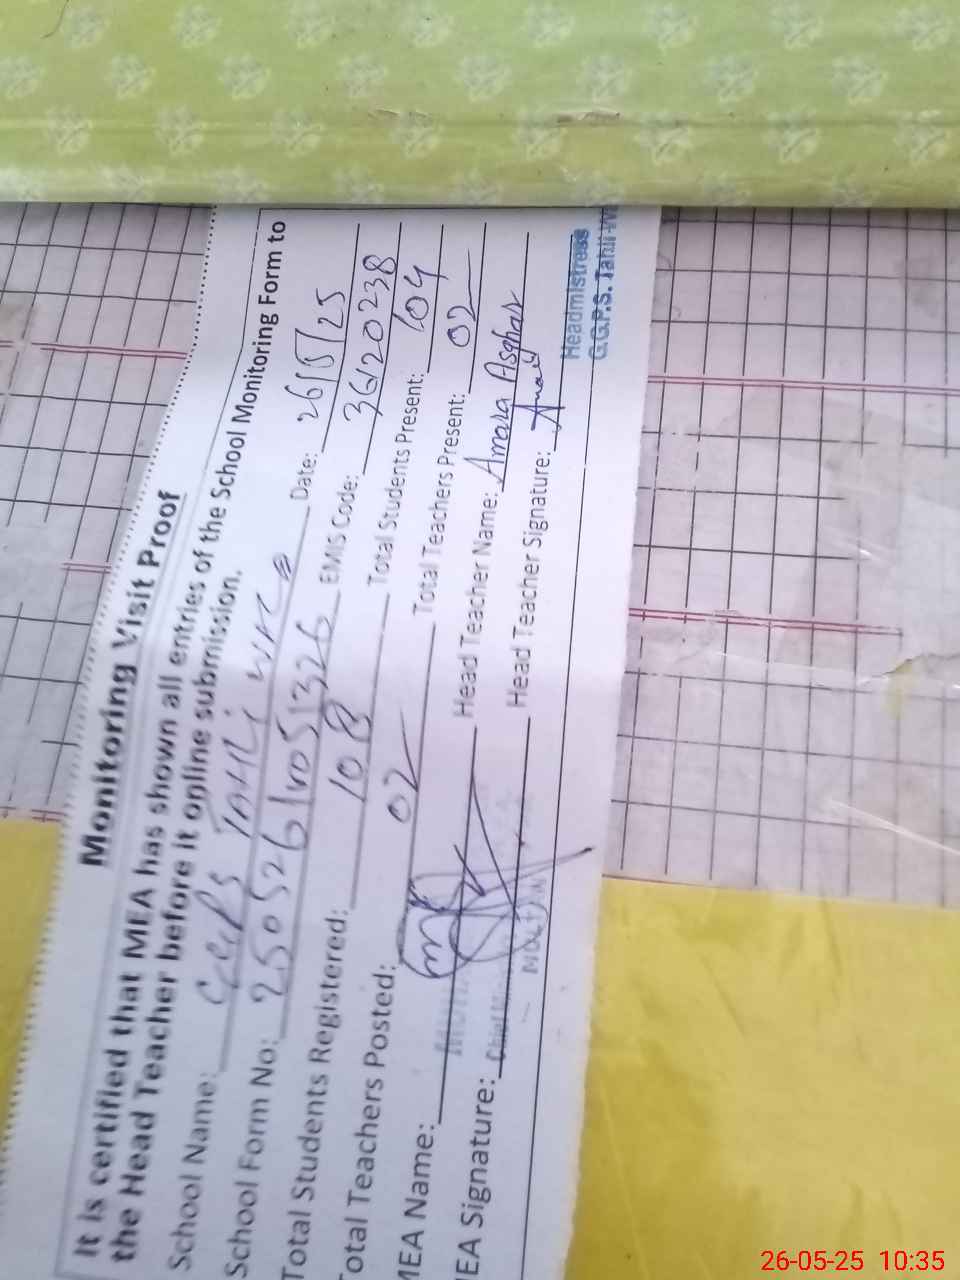 Monitoring Visit Proof
It is certified that MEA has shown all entries of the School Monitoring Form to
the Head Teacher before it online submission.
School Name: GGPS TAHLi Date: 26/5/25
School Form No: EMIS Code: 36120238
Total Students Registered: 108 Total Students Present: 104
Total Teachers Posted: 02 Total Teachers Present: 02
MEA Name: Head Teacher Name: Amara Asghar
MEA Signature: Head Teacher Signature:
MULTAN
Headmistress
G.G.P.S. Tahli W
26-05-25 10:35